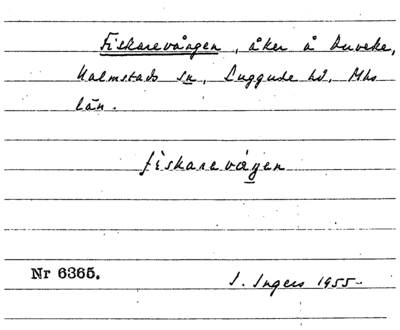 Fiskarevången, åker å Duveke,
Halmstads sn, Luggude hd, Mhs
län.
fiskarevåŋen
Nr 6365.
I. Ingers 1955